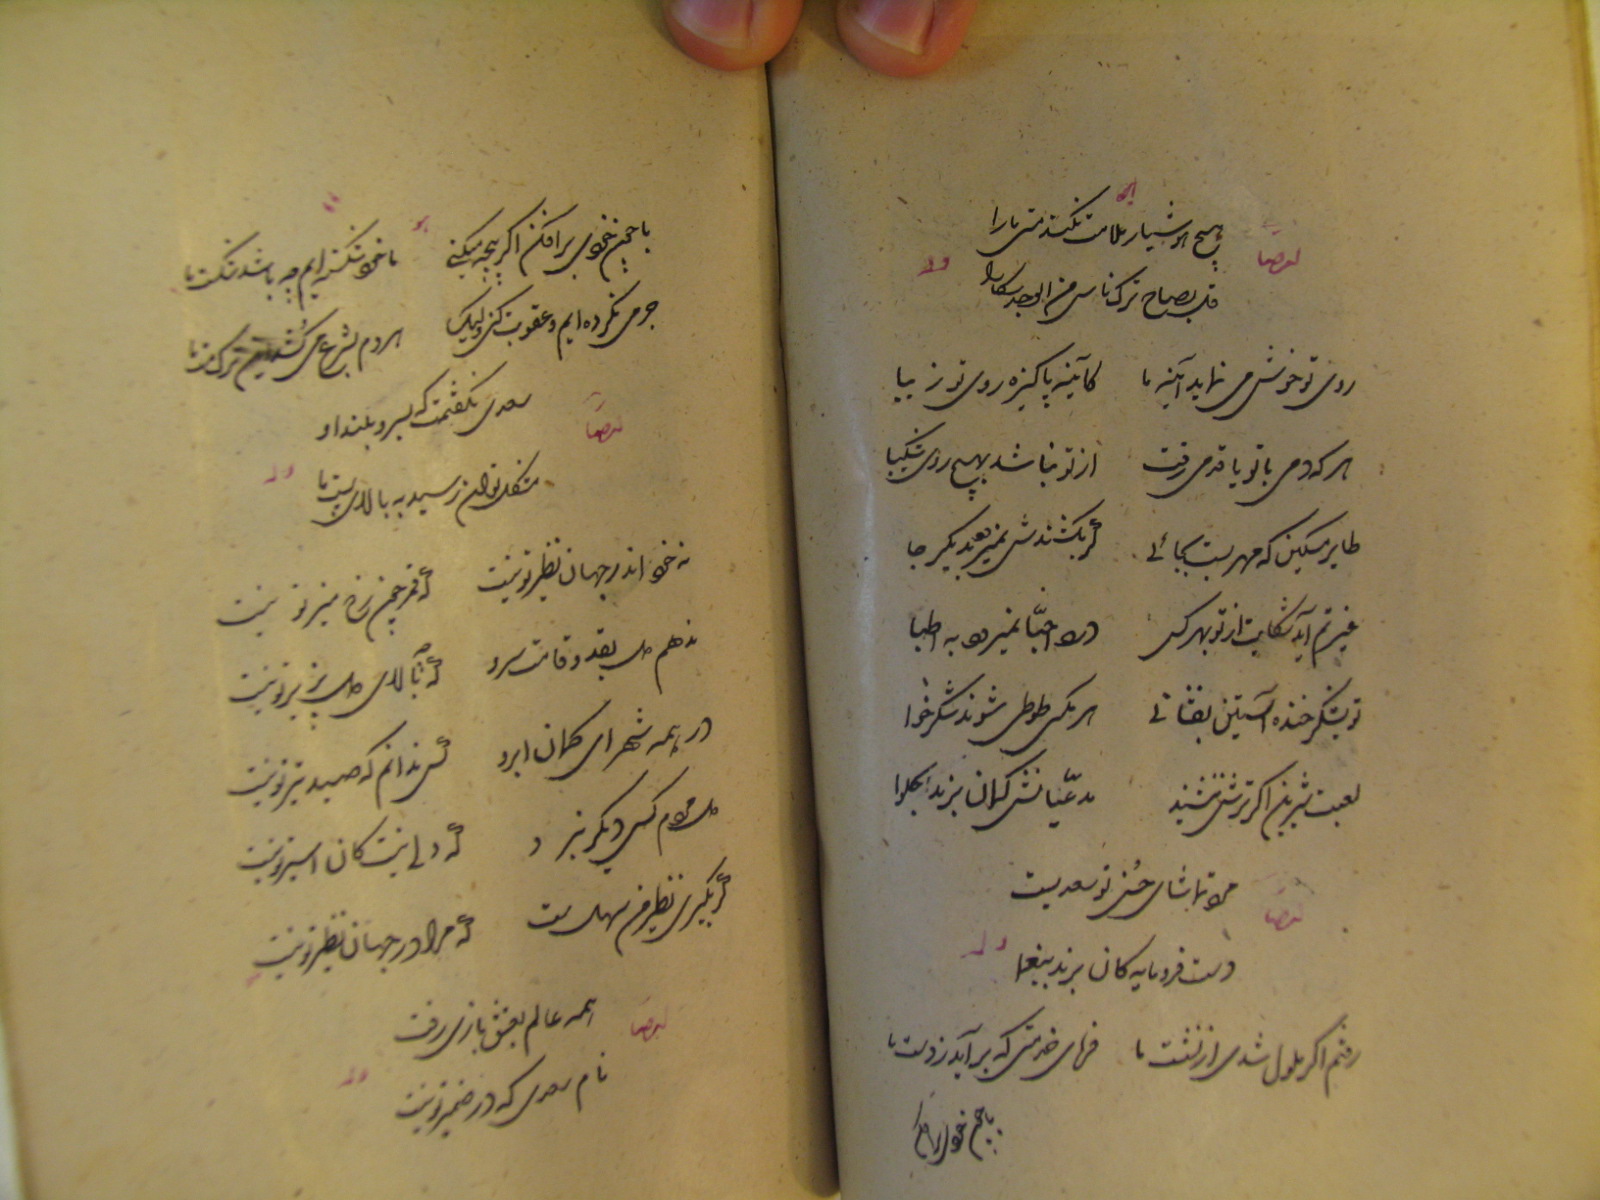 هیچ هوشیار ملامت نکند مستی ما را
قل بصاح ترک الناس من الوجد سکارا
روی تو خوش می نماید آینه ما کاینه پاکیزه روی تو زیبا
هر که دمی با تو یا قدمی رفت از تو نباشد بهیچ روی شکیبا
طایر مسکین که مهر بست بجائی گر بکشندش نمیرود بدیگر جا
غیرتم آید شکایت از تو بهر کس درد احبّا نمیبرم به اطبا
تو بشکر خنده آستین بفشانی هر مگسی طوطی شوند شکرخا
لعبت شیرین اگر ترش ننشیند مدّعیانش کمان برند بحلوا
مرد تماشای حُسن تو سعدیست
دست فرومایه کان برند بیغما
رفتم اگر ملول شدی از نشست ما فرمای خدمتی که بر آید ز دست ما
با چون خودی برافکن
با چون خودی برافکن اگر پنجه میکنی ما خود شکسته ایم چه باشد شکست ما
جرمی نکرده ایم و عقوبت کنی ولیک مردم بشرع می نکشد ترک مست ما
سعدی نگفتمت که بسرو بلند او
مشکل توان رسید به بالای پست ما
نه خود اندر جهان نظیر تو نیست که قمر چون رخ منیر تو نیست
ندهم دل بقد و قامت سرو که ببالای دلپذیر تو نیست
در همه شهر ای کمان ابرو کس ندانم که صید تیر تو نیست
دل مردم کسی دیگر نبرد که دلی نیست کان اسیر تو نیست
گر بگیری نظیر من سهلست که مرا در جهان نظیر تو نیست
همه عالم بعشق بازی رفت
نام سعدی که در ضمیر تو نیست